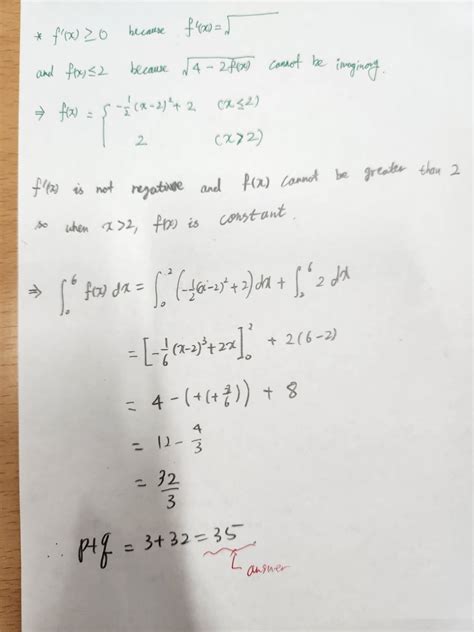 * f'(x) ≥ 0 because f'(x) = √
and f(x) ≤ 2 because √(4 - 2f(x)) cannot be imaginary.
⇒ f(x) = { -1/2 (x-2)² + 2 (x ≤ 2)
2 (x > 2)
f'(x) is not negative and f(x) cannot be greater than 2
so when x>2, f(x) is constant.
⇒ ∫₀⁶ f(x) dx = ∫₀² (-1/2 (x-2)² + 2) dx + ∫₂⁶ 2 dx
= [-1/6 (x-2)³ + 2x]₀² + 2(6-2)
= 4 - (+(+ /6)) + 8
= 12 - 4/3
= 32/3
∴ p+q = 3+32 = 35
answer